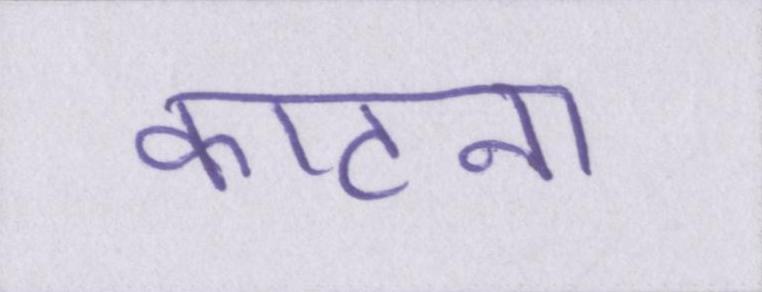 काटना